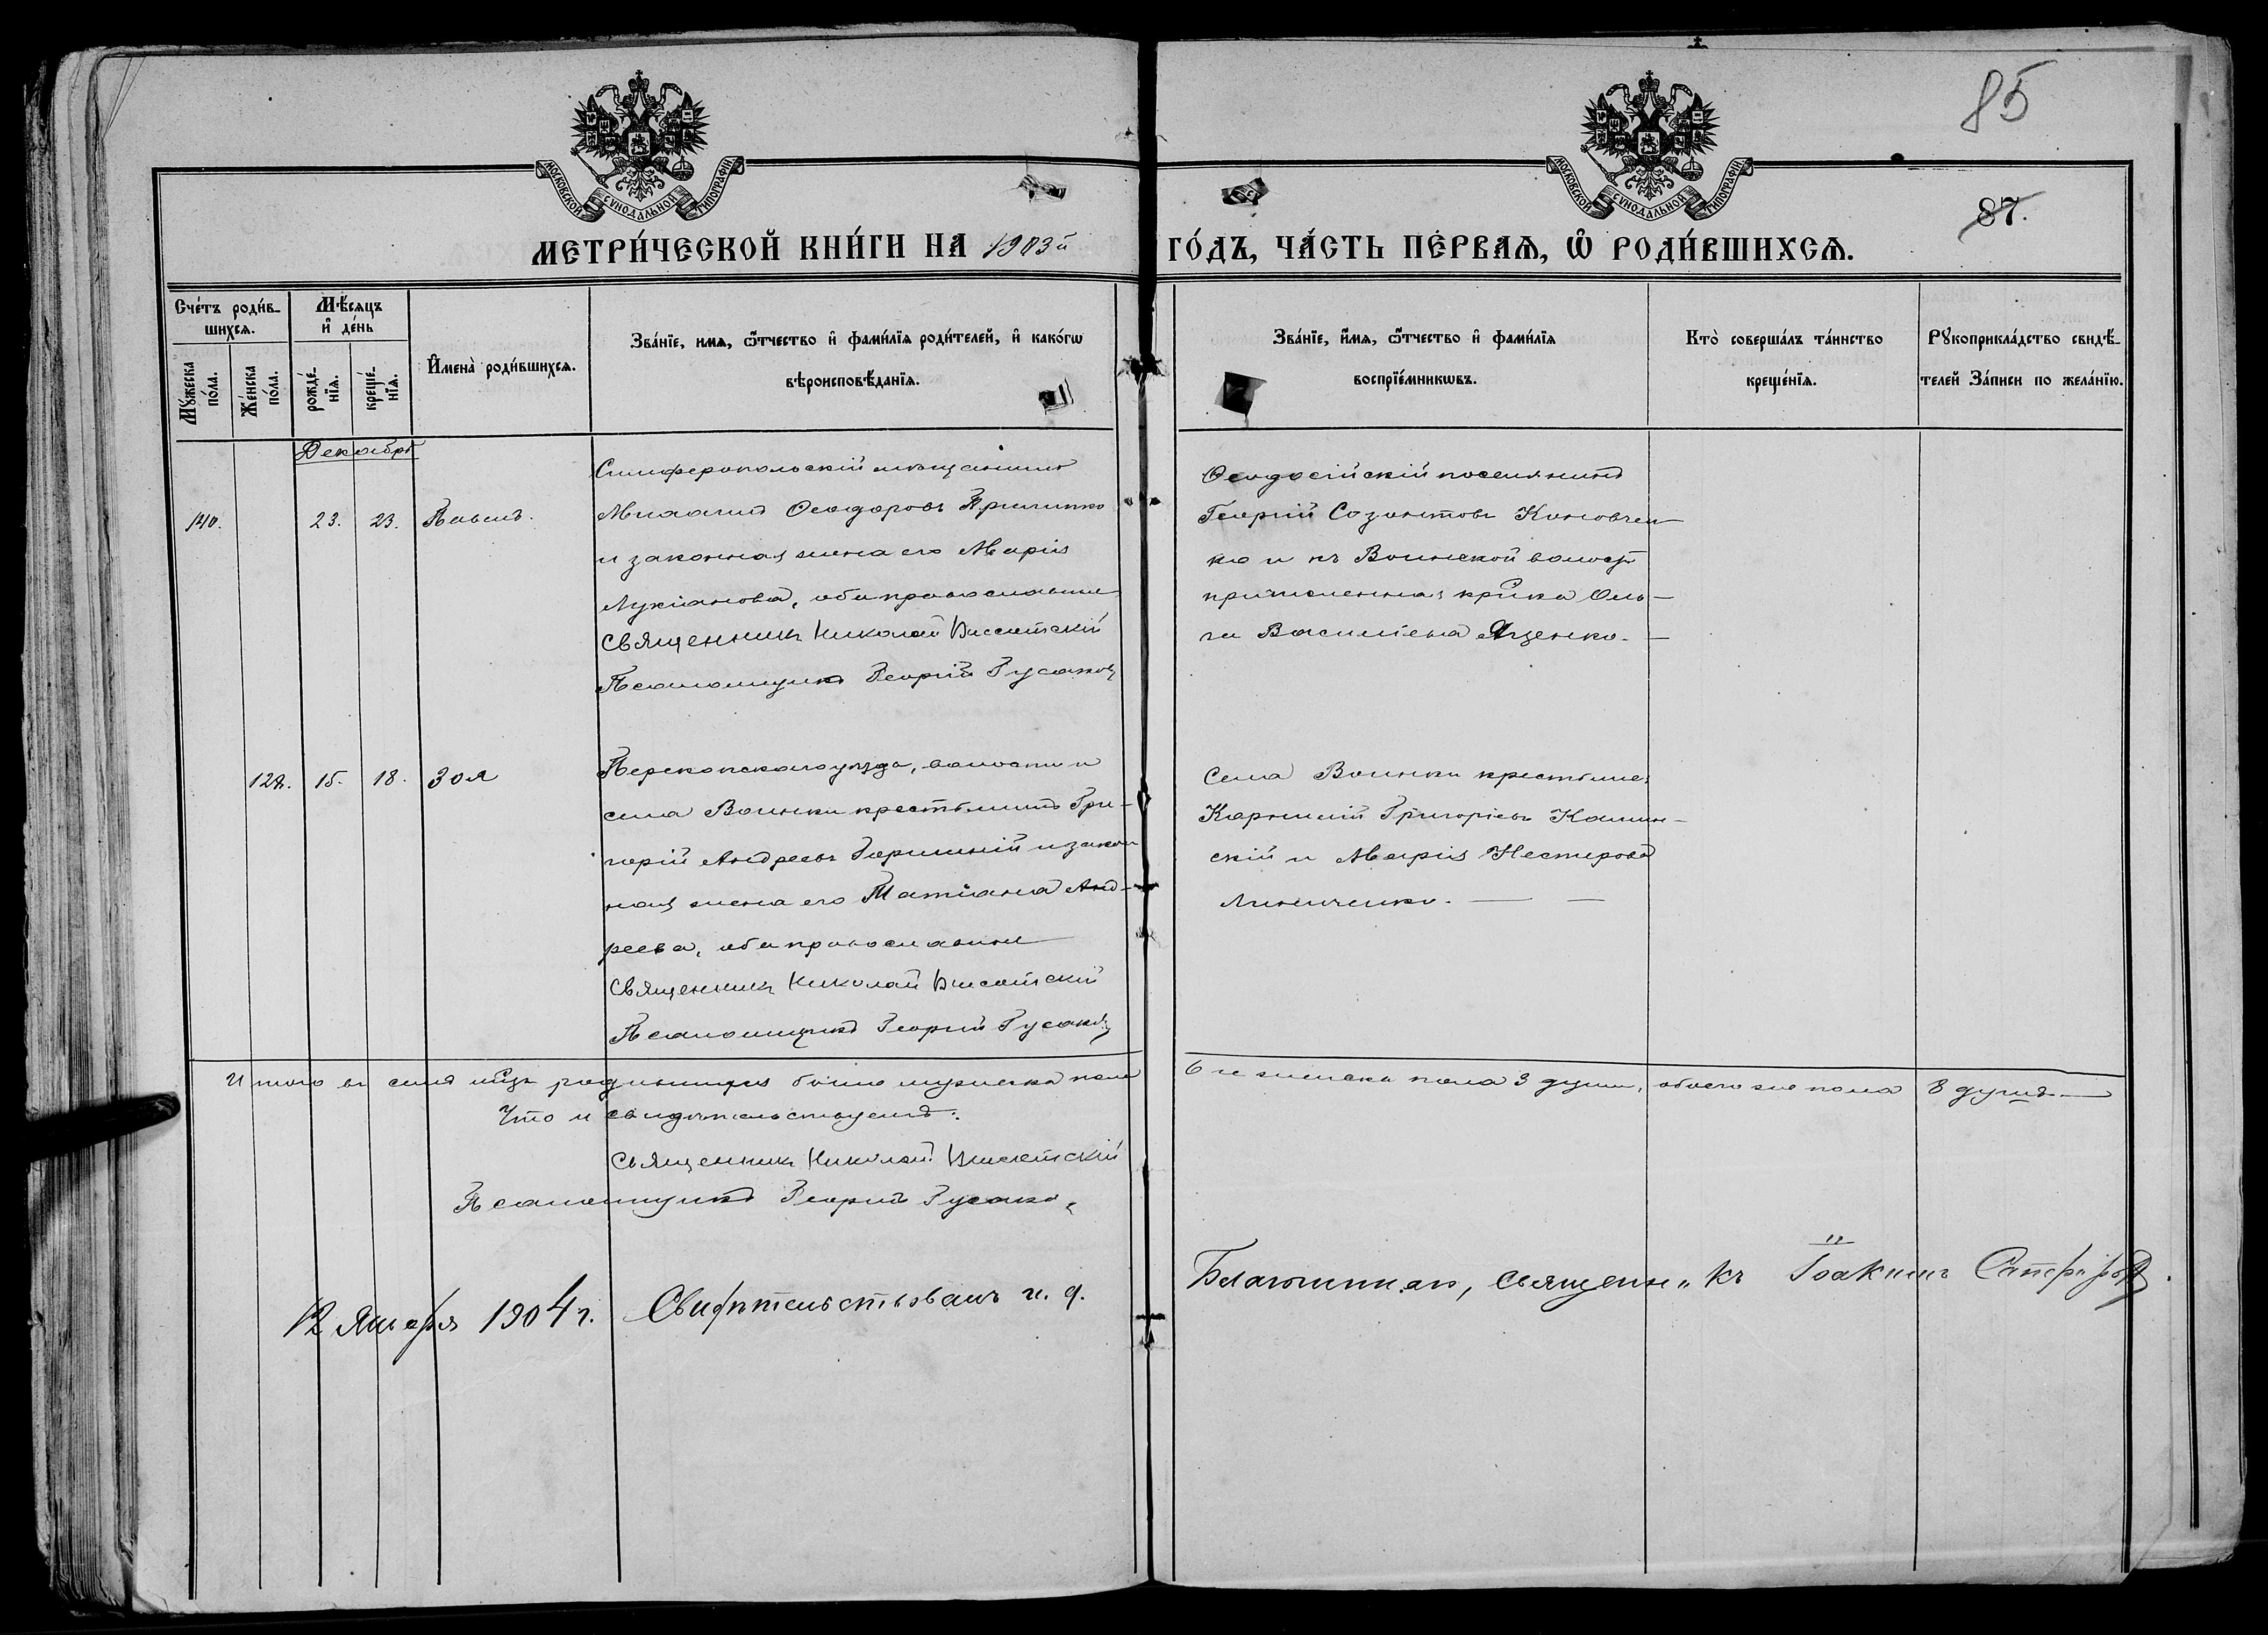 85
87.
МОСКОВСКОЙ СѴНОДАЛЬНОЙ ТИПОГРАФІИ
МОСКОВСКОЙ СѴНОДАЛЬНОЙ ТИПОГРАФІИ
МЕТРИ́ЧЕСКОЙ КНИ́ГИ НА 1903й ГО́ДЪ, ЧА́СТЬ ПЕ́РВАѦ, Ѿ РОДИ́ВШИХСѦ.
Сче́тъ роди́в-
шихсѧ.
Мꙋ́жеска по́ла.
Же́нска по́ла.
Мѣ́сѧцъ
и҆ де́нь
рожде́-
нїѧ.
креще́-
нїѧ.
И҆мена̀ роди́вшихсѧ.
Зва́нїе, имѧ, ѿ́тчество и҆ фами́лїѧ роди́телей, и҆ како́гѡ
вѣроисповѣ́данїѧ.
Зва́нїе, и҆́мѧ, ѿ́тчество и҆ фами́лїѧ
воспрїе́мникѡвъ.
Кто̀ соверша́лъ та́инство
креще́нїѧ.
Рꙋкоприкла́дство свидѣ́-
телей За́писи по жела́нїю.
Декабрь
140. 23. 23. Павелъ.
Симферопольскій мѣщанинъ
Михаилъ Ѳеодоровъ
и законная жена его Марія
Лукіанова, оба православные
Священникъ Николай
Псаломщикъ Георгій Гусаковъ
Ѳеодосійскій поселянинъ
Георгій Созонтовъ
ко и къ Воинской волости
причисленная Оль-
га Васильева Яценко.
15. 18. Зоя
Перекопскаго уѣзда, волости и
села Воинки крестьянинъ Гри-
горій Андреевъ и закон
ная жена его Татіана Анд-
реева, оба православные
Священникъ Николай
Псаломщикъ Георгій Гусаковъ
Села Воинки крестьяне:
Корнилій Григорьевъ Калин-
скій и Марія Нестерова
Линиченко.
Итого въ семъ мѣсяцѣ родившихся было мужеска пола 6 ге женска пола 3 души, обоего же пола 8 душъ.
Что и свидѣтельствуемъ:
Священникъ Николай
Псаломщикъ Георгій Гусаковъ
12 Января 1904 г. Свидѣтельствовалъ и. д. Благочиннаго, священникъ Іоакимъ